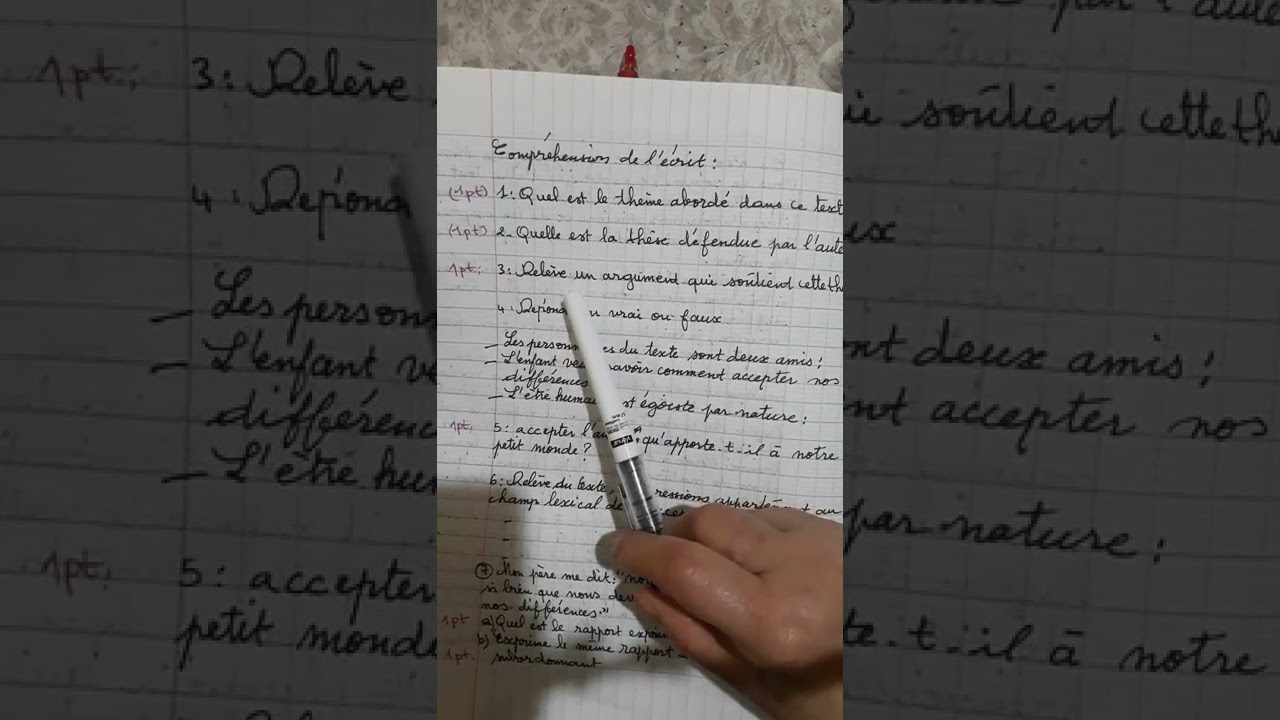 Compréhension de l'écrit :
(1pt) 1: Quel est le thème abordé dans ce text
(1pt) 2- Quelle est la thèse défendue par l'aute
1pt: 3: Relève un argument qui soutiend cette th
4: Repond u vrai ou faux
- Les personn es du texte sont deux amis :
- L'enfant ve avoir comment accepter nos
différences
- L'être huma st égoïste par nature :
1pt, 5: accepter l'au qu'apporte-t-il à notre
petit monde ?
6: Relève du texte, ressions appartenant au
champ lexical de
-
-
⑦ Mon père me dit : "no
si bien que nous dev
nos différences."
1pt a) Quel est le rapport exprim
b) Exprime le même rapport
1pt. subordonnant